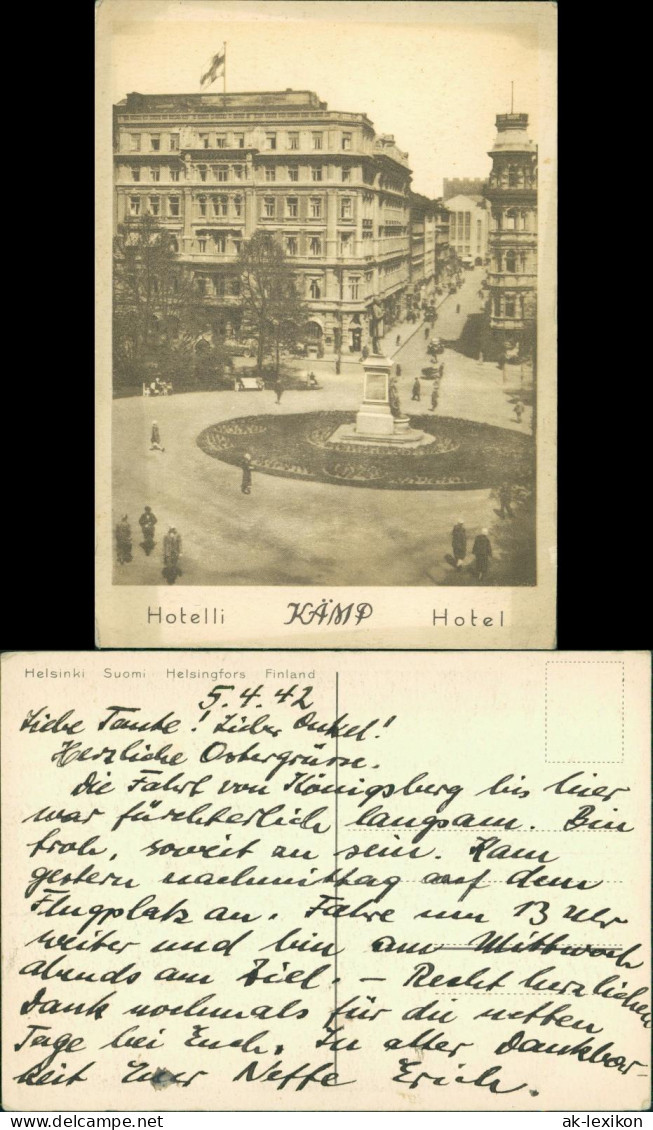 Hotelli KÄMP Hotel
Helsinki Suomi Helsingfors Finland
5.4.42
Liebe Tante! Lieber Onkel!
Herzliche Ostergrüße.
Die Fahrt von Königsberg bis hier
war fürchterlich langsam. Bin
froh, soweit zu sein. Kam
gestern nachmittag auf dem
Flugplatz an. Fahre um 13 Uhr
weiter und bin am Mittwoch
abends am Ziel. – Recht herzlichen
Dank nochmals für die netten
Tage bei Euch. In alter Dankbar-
keit Euer Neffe Erich.
ak-lexikon